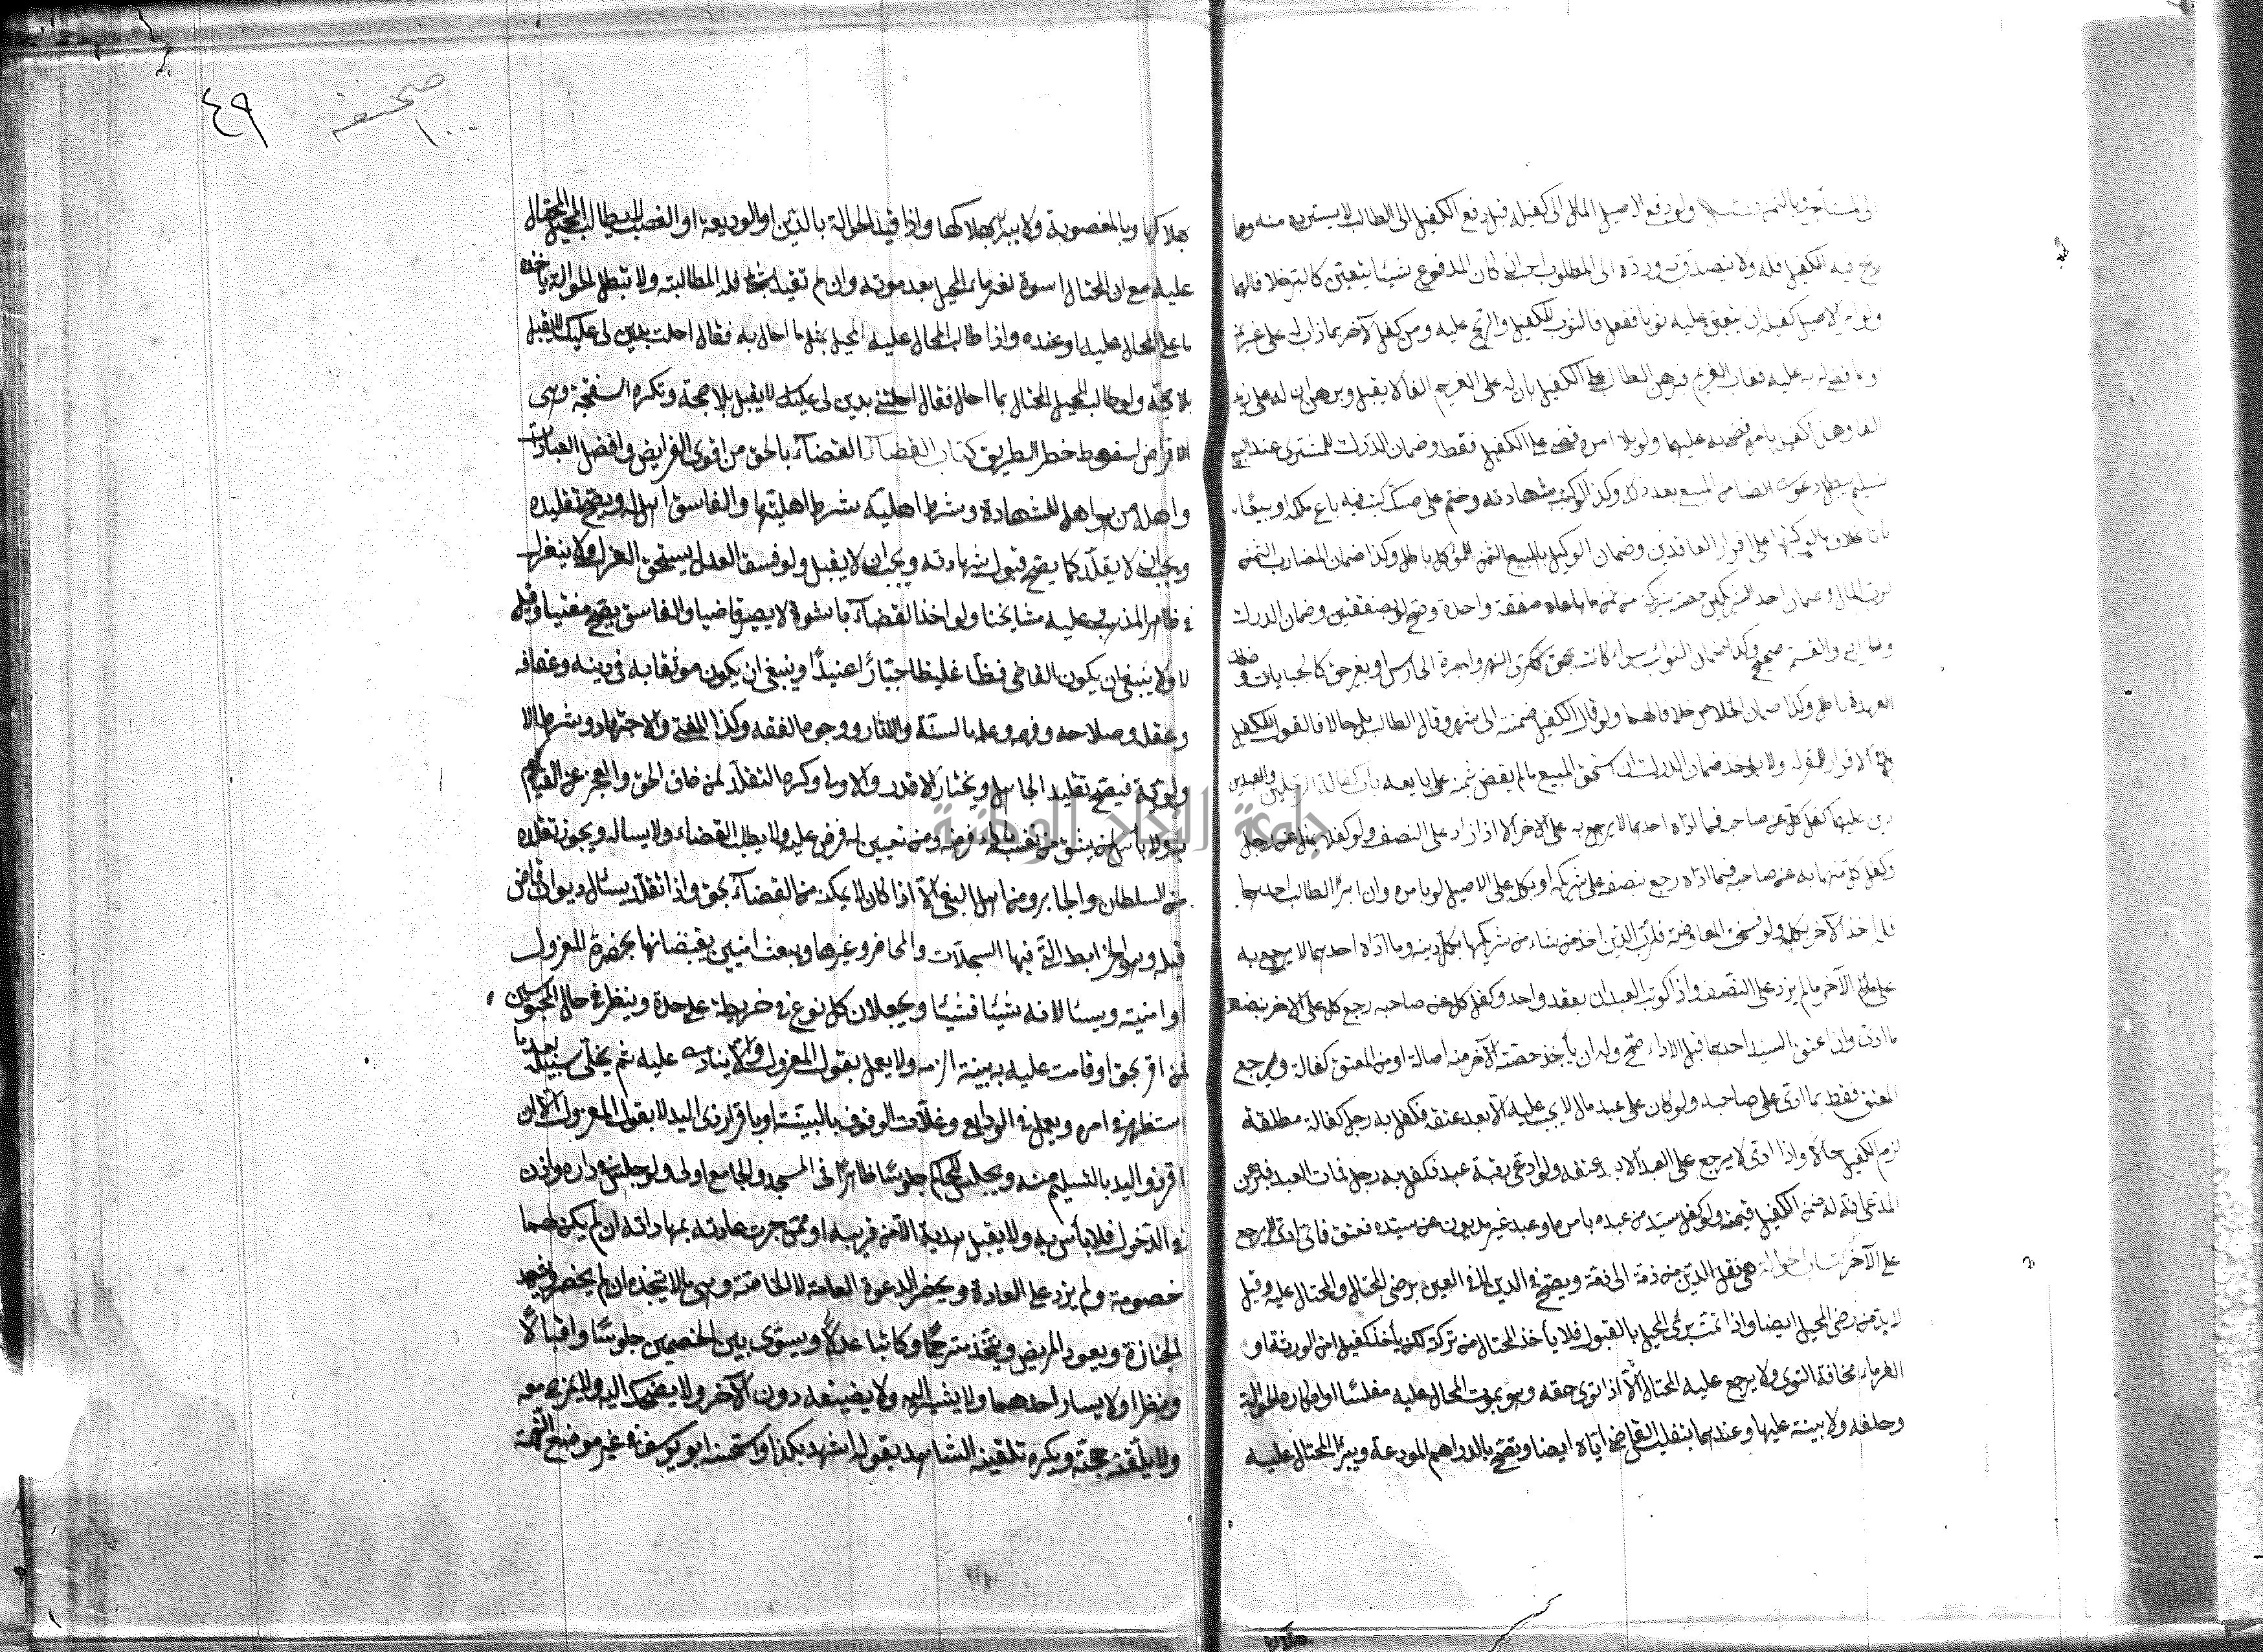 ولو دفع الاصيل المال الى كفيله قبل دفع الكفيل الى الطالب لا يسترده منه وما
ربح فيه الكفيل فله ولا يتصدق به ورده الى المطلوب احب ان كان المدفوع شيئا يتعين كالبر خلافا لهما
ولو امر الاصيل كفيله ان يتعين عليه ثوبا ففعل فالثوب للكفيل والربح عليه ومن كفل لآخر بما ذاب له على غريمه
او بما قضى له به عليه فغاب الغريم فبرهن الطالب على الكفيل بان له على الغريم الفا لا يقبل وبرهن ان له على زيد
الفا وهذا كفيل بامره قضى به عليهما ولو بلا امره قضى على الكفيل فقط وضمان الدرك للمشتري عند البيع
تسليم يبطل دعوى الضامن المبيع بعد ذلك وكذا لو كتب شهادته وختم على صك كتب فيه باع ملكه او بيعا
على اقرار العاقدين وضمان الوكيل بالبيع الثمن للموكل باطل وكذا ضمان المضارب الثمن
لرب المال وضمان احد الشريكين حصة شريكه من ثمن ما باعاه صفقة واحدة وصح لو بصفقتين وضمان الدرك
والقسمة صحيح وكذا ضمان النوائب سواء كانت بحق ككري النهر واجرة الحارس او بغير حق كالجبايات وضمان
العهدة باطل وكذا ضمان الخلاص خلافا لهما ولو قال الكفيل ضمنته الى شهر وقال الطالب بل حالا فالقول للكفيل
وفي الاقرار للمقر له ولا يؤخذ ضمان الدرك ان استحق المبيع ما لم يقض بثمنه على بايعه باب كفالة الرجلين والعبدين
دين عليهما كفل كل عن صاحبه فما اداه احدهما لا يرجع به على الآخر الا اذا زاد على النصف ولو كفلا بمال عن رجل
وكفل كل منهما به عن صاحبه فما اداه رجع بنصفه على شريكه او بكله على الاصيل لو بامره وان ابرأ الطالب احدهما
فله اخذ الآخر بكله ولو فسخت المفاوضة فلرب الدين اخذ من شاء من شريكيها بكل دينه وما اداه احدهما لا يرجع به
على الآخر ما لم يزد على النصف واذا كوتب العبدان بعقد واحد وكفل كل عن صاحبه رجع كل على الآخر بنصف
ما ادى وان اعتق السيد احدهما قبل الاداء صح وله ان يأخذ حصة الآخر منه اصالة او من المعتق كفالة ويرجع
المعتق فقط بما ادى على صاحبه ولو كان على عبد مال لا يجب عليه الا بعد عتقه فكفل به رجل كفالة مطلقة
لزم الكفيل حالا واذا ادى لا يرجع على العبد الا بعد عتقه ولو ادعى رقبة عبد فكفل به رجل فمات العبد فبرهن
المدعي انه له ضمن الكفيل قيمته ولو كفل سيد عن عبده بامره او عبد غير مديون عن سيده فعتق فاي ادى لا يرجع
على الآخر كتاب الحوالة هي نقل الدين من ذمة الى ذمة ويصح في الدين لا في العين برضى المحتال والمحتال عليه وقيل
لا بد من رضى المحيل ايضا واذا تمت برئ المحيل بالقبول فلا يأخذ المحتال من تركته لكن يأخذ كفيلا من الورثة او
الغرماء مخافة التوى ولا يرجع عليه المحتال الا اذا توى حقه وهو بموت المحال عليه مفلسا او انكاره الحوالة
وحلفه ولا بينة عليها وعندهما بتفليس القاضي اياه ايضا وتصح بالدراهم المودعة ويبرأ المحتال عليه
صحيفة ١٠٠
٤٩
بهلاكها وبالمغصوبة ولا يبرأ بهلاكها واذا قيد الحوالة بالدين او الوديعة او الغصب لا يطالب المحيل المحتال
عليه مع ان المحتال اسوة لغرماء المحيل بعد موته وان لم تقيد بشئ فله المطالبة ولا تبطل الحوالة باخذه
ما على المحال عليه او عنده واذا طالب المحال عليه المحيل بمثل ما احال به فقال احلت بدين لي عليك لا يقبل
بلا حجة ولو طالب المحيل المحتال بما احال فقال احلتني بدين لي عليك لا يقبل بلا حجة وتكره السفتجة وهي
الاقراض لسقوط خطر الطريق كتاب القضاء القضاء بالحق من اقوى الفرايض وافضل العبادات
واهله من هو اهل للشهادة وشرط اهليته شرط اهليتها والفاسق اهل له ويصح تقليده
ويجب ان لا يقلد كما يصح قبول شهادته ويجب ان لا يقبل ولو فسق العدل يستحق العزل ولا ينعزل
في ظاهر المذهب وعليه مشايخنا ولو اخذ القضاء بالرشوة لا يصير قاضيا والفاسق يصح مفتيا وقيل
لا ولا ينبغي ان يكون القاضي فظا غليظا جبارا عنيدا وينبغي ان يكون موثقا به في دينه وعفافه
وعقله وصلاحه وفهمه وعلمه بالسنة والاثار ووجوه الفقه وكذا المفتي والاجتهاد وشرط الا
ولوية فيصح تقليد الجاهل ويختار الاقدر والاولى وكره التقلد لمن خاف الحيف والعجز عن القيام
به ولا بأس لمن يثق من نفسه باداء فرضه ومن تعين له فرض عليه ولا يطلب القضاء ولا يسأله ويجوز تقلده
من السلطان والجابر ومن اهل البغي الا اذا كان لا يمكنه من القضاء بحق واذا تقلد يسأل ديوان قاض
قبله وهو الخرايط التي فيها السجلات والمحاضر وغيرها ويبعث امينين يقبضانها بحضرة المعزول
او امينه ويسئالانه شيئا فشيئا ويجعلان كل نوع في خريطة على حدة وينظر في حال المحبوسين
فمن اقر بحق او قامت عليه به بينة الزمه ولا يعمل بقول المعزول والا ينادى عليه ثم يخلى سبيله بعد ما
يستظهر في امره ويعمل في الودايع وغلات الوقوف بالبينة او باقرار ذي اليد لا بقول المعزول الا ان
اقر ذو اليد بالتسليم منه ويجلس للحكم جلوسا ظاهرا في المسجد والجامع اولى ولو جلس في داره واذن
في الدخول فلا بأس به ولا يقبل هدية الا من قريبه او ممن جرت عادته بمهاداته ان لم يكن لهما
خصومة ولم يزد على العادة ويحضر الدعوة العامة لا الخاصة وهي ما لا يتخذ ان لم يحضر ويشهد
الجنازة ويعود المريض ويتخذ مترجما وكاتبا عدلا ويسوي بين الخصمين جلوسا واقبالا
ونظرا ولا يسار احدهما ولا يشير اليه ولا يضيفه دون الآخر ولا يضحك اليه ولا يمزح معه
ولا يلقنه حجته ويكره تلقينه الشاهد بقوله اشهد بكذا واستحسنه ابو يوسف في غير موضع التهمة
جامعة النجاح الوطنية